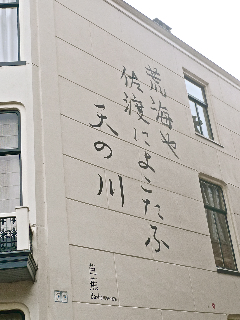 荒海や
佐渡によこたふ
天の川
芭蕉